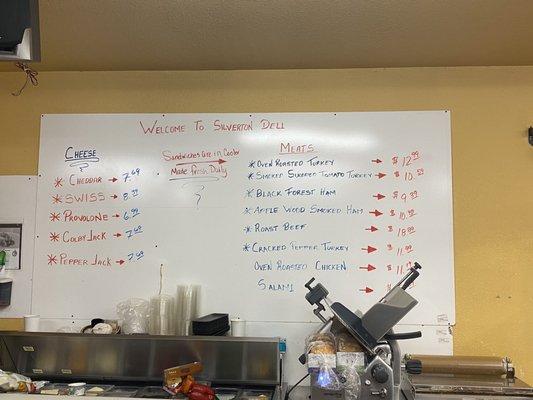 Welcome To Silverton Deli
Cheese
* Cheddar → 7.69
* Swiss → 8.39
* Provolone → 6.99
* Colby Jack → 7.69
* Pepper Jack → 7.69
Sandwiches are in Cooler
Made fresh Daily
Meats
* Oven Roasted Turkey → $ 12.99
* Smoked Sundried Tomato Turkey → $ 10.59
* Black Forest Ham → $ 9.89
* Apple Wood Smoked Ham → $ 10.99
* Roast Beef → $ 18.99
* Cracked Pepper Turkey → $ 11.99
Oven Roasted Chicken → $ 11.99
Salami → $